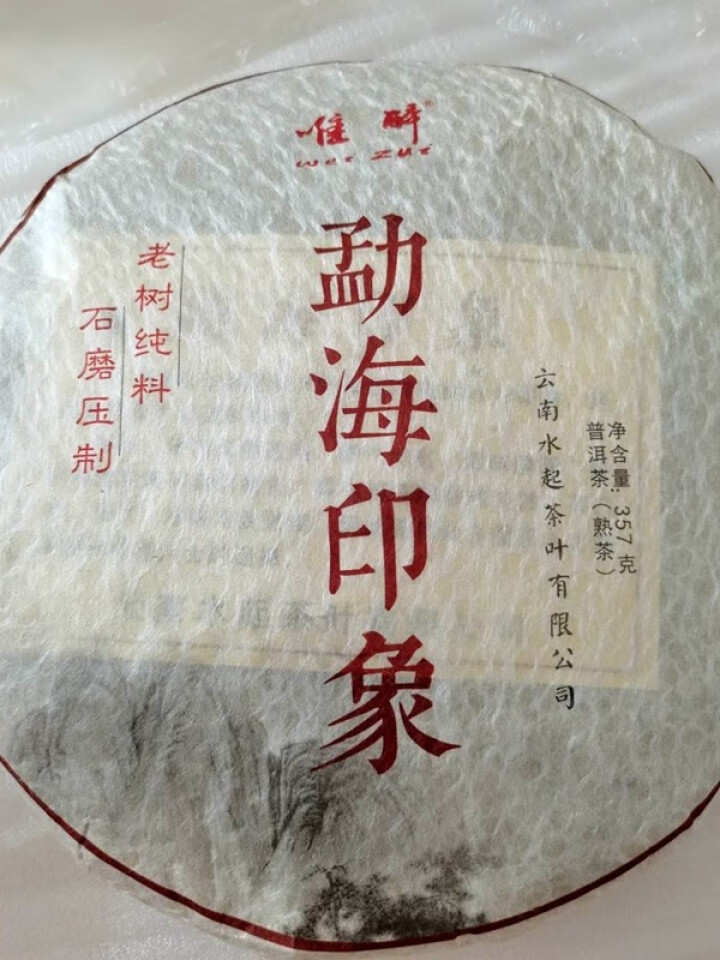 唯醉®
Wei Zui
勐海印象
老树纯料
石磨压制
净含量:357克
普洱茶(熟茶)
云南水起茶叶有限公司